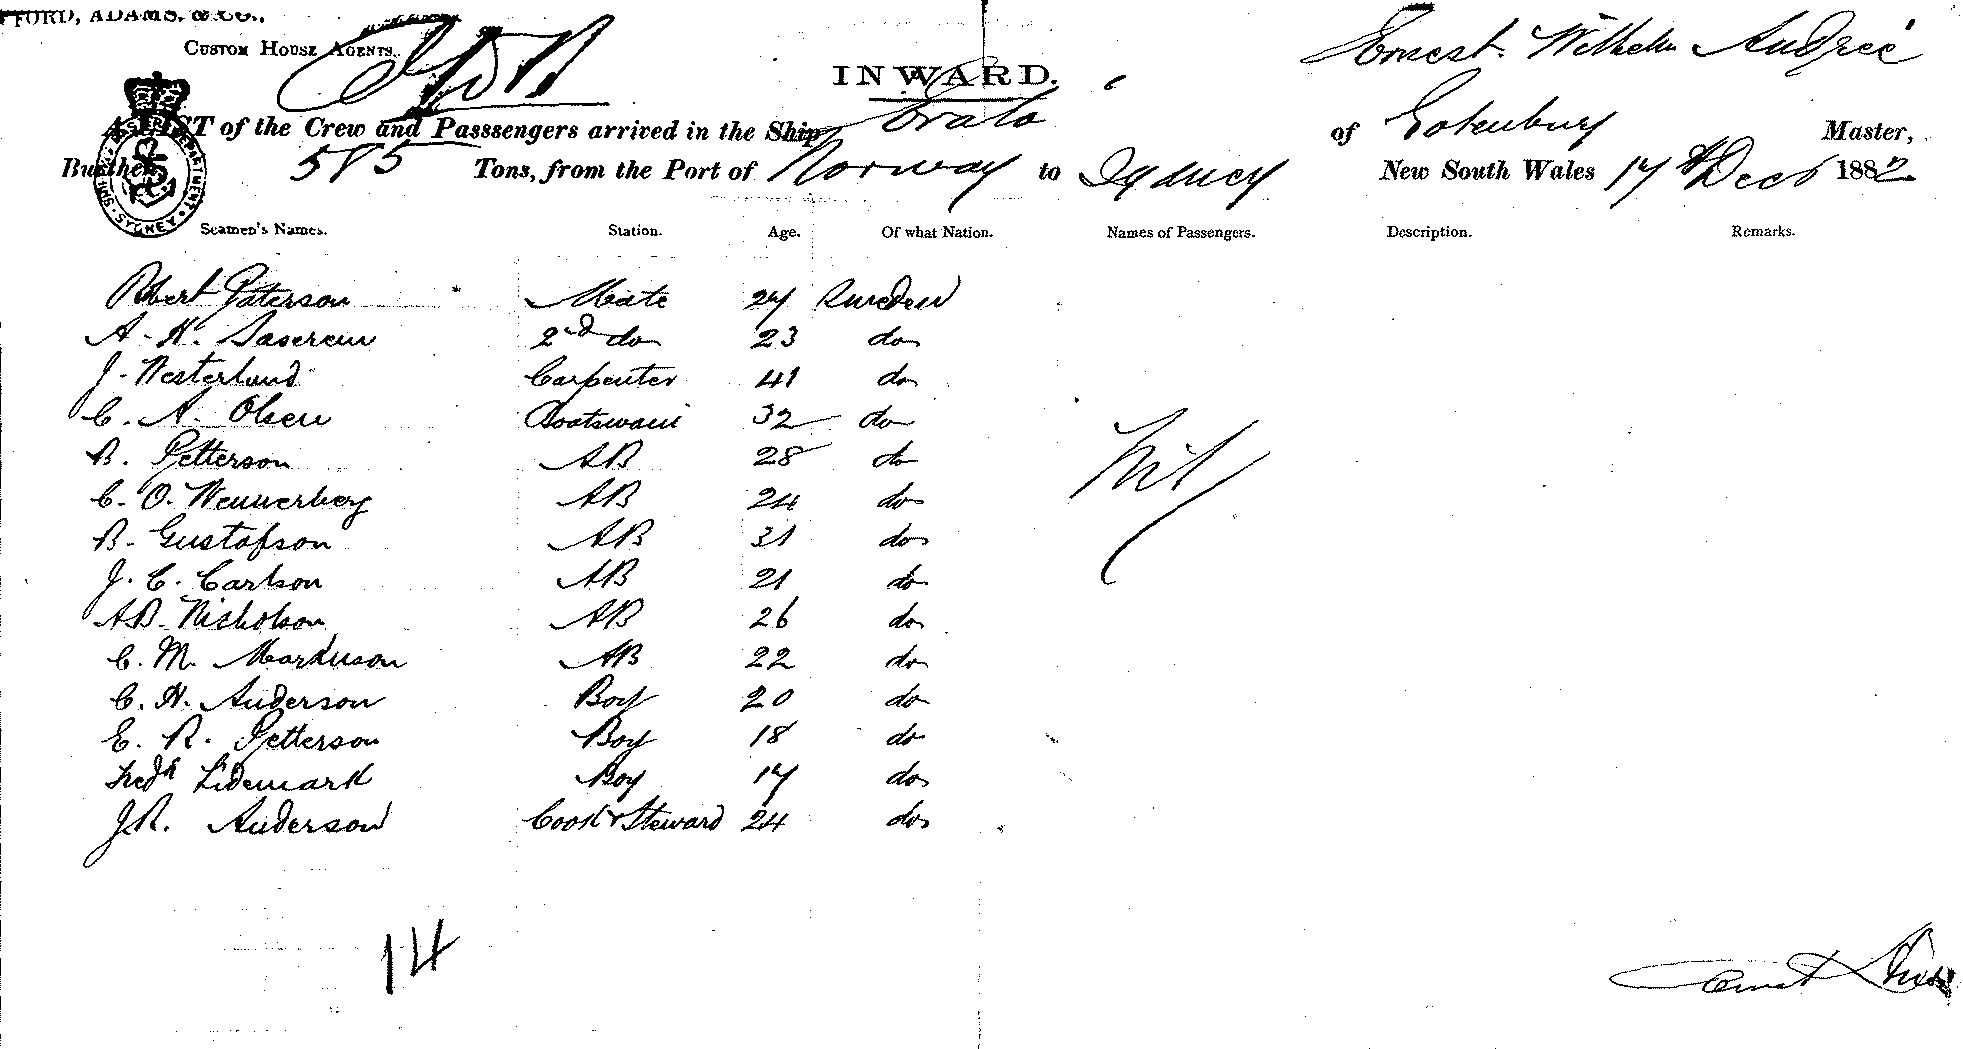 FORD, ADAMS, & CO.,
CUSTOM HOUSE AGENTS.
INWARD.
Ernest Wilhelm Andreé
A LIST of the Crew and Passsengers arrived in the Ship Erato of Gotenburg Master,
Burthen 585 Tons, from the Port of Norway to Sydney New South Wales 17th Decr 1882
SYDNEY
Seamen's Names. Station. Age. Of what Nation. Names of Passengers. Description. Remarks.
Robert Paterson Mate 27 Sweden
A. K. 2nd do 23 do
J. Westerlund Carpenter 41 do
C. A. Olsen Boatswain 32 do
Nil
B. Petterson AB 28 do
C. O. Wennerberg AB 24 do
B. Gustafson AB 31 do
J. C. Carlson AB 21 do
A B Nicholson AB 26 do
C. M. Markuson AB 22 do
C. H. Anderson Boy 20 do
E. R. Petterson Boy 18 do
Fredk Lidemark Boy 17 do
J R. Anderson Cook & Steward 24 do
14
Ernst